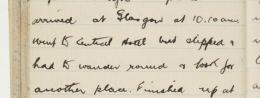 arrived at Glasgow at 10.10 am
went to Central Hotel but slipped &
had to wander round & look for
another place. Finished up at